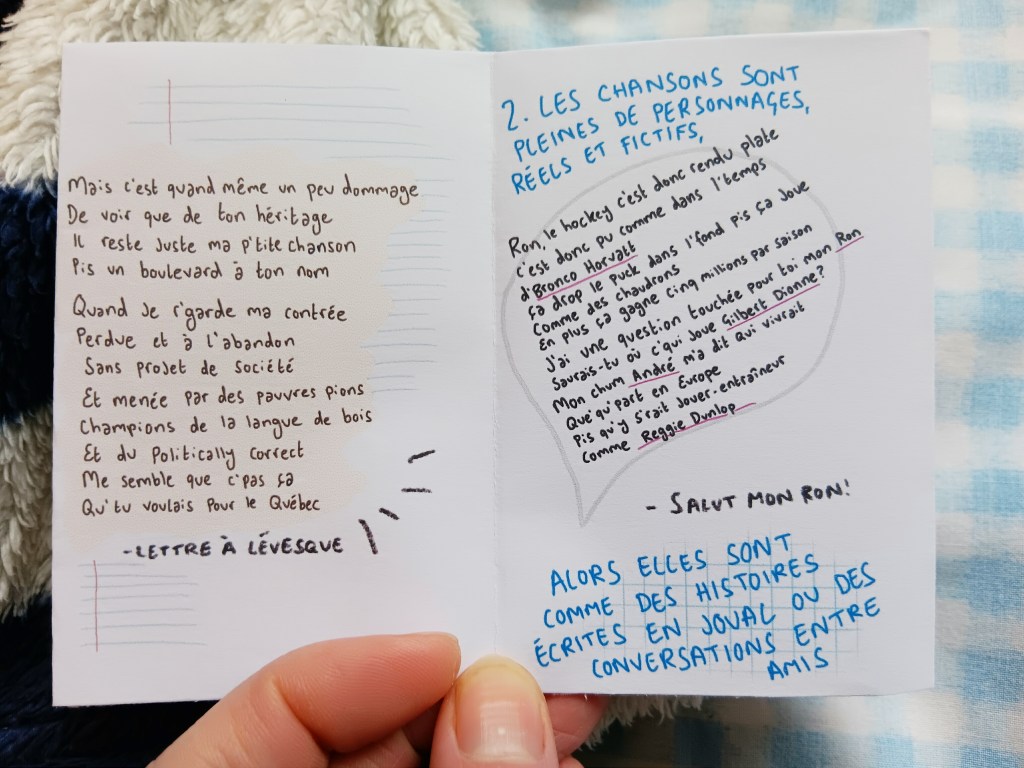 Mais c'est quand même un peu dommage
De voir que de ton héritage
Il reste juste ma p'tite chanson
Pis un boulevard à ton nom
Quand je r'garde ma contrée
Perdue et à l'abandon
Sans projet de société
Et menée par des pauvres pions
Champions de la langue de bois
Et du Politically correct
Me semble que c'pas ça
Qu'tu voulais pour le Québec
-LETTRE À LÉVESQUE
2. LES CHANSONS SONT
PLEINES DE PERSONNAGES,
RÉELS ET FICTIFS,
Ron, le hockey c'est donc rendu plate
c'est donc pu comme dans l'temps
d'Bronco Horvatt
Ça drop le puck dans l'fond pis ça joue
Comme des chaudrons
En plus ça gagne cinq millions par saison
J'ai une question touchée pour toi mon Ron
Saurais-tu où c'qui joue Gilbert Dionne?
Mon chum André m'a dit qui vivrait
Que'qu'part en Europe
Pis qu'y s'rait jouer-entraîneur
Comme Reggie Dunlop
- SALUT MON RON!
ALORS ELLES SONT
COMME DES HISTOIRES
ÉCRITES EN JOUAL OU DES
CONVERSATIONS ENTRE
AMIS